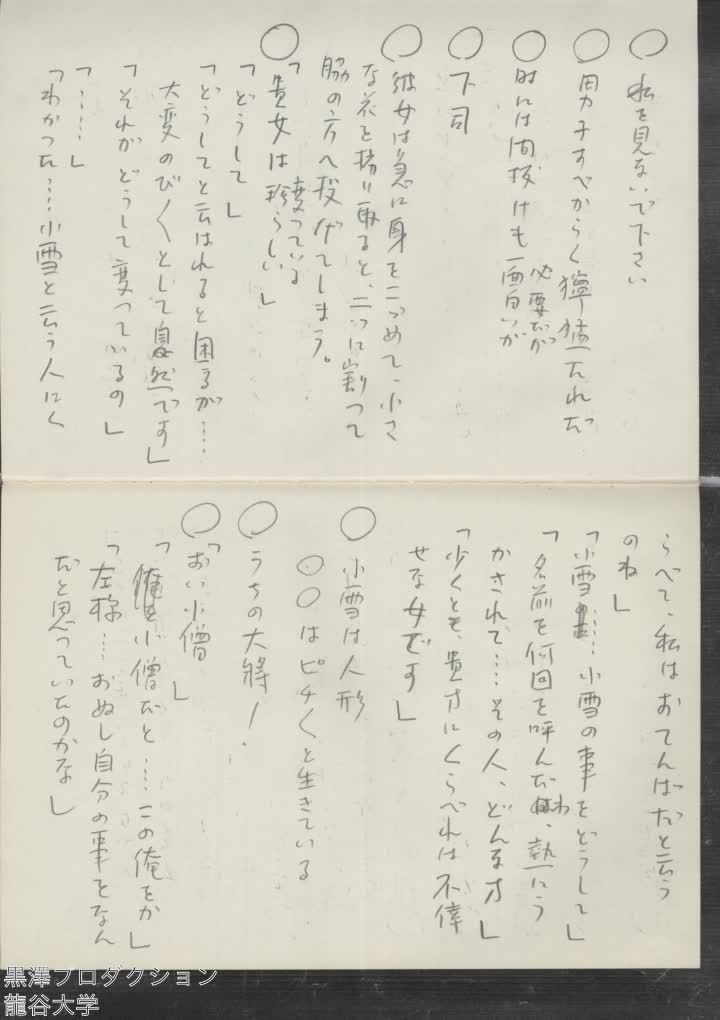 ○ 私を見ないで下さい
○ 男子すべからく獰猛たれだ
○ 時には間抜けも面白いが
必要だが
○ 下司
○ 彼女は急に身をこゞめて、小さ
な花を拗り取ると、二つに割つて
脇の方へ投げてしまう。
○「貴女は珍らしい」
変つている
「どうして」
「どうしてと云はれると困るが‥‥
大変のびくとして自然です」
「それがどうして変つているの」
「‥‥」
「わかつた‥‥小雪と云う人にく
らべて、私はおてんばだと云う
のね」
「小雪‥‥小雪の事をどうして」
「名前を何回を呼んだわ、熱にう
かされて‥‥その人、どんな方」
「少くとも、貴方にくらべれば不倖
せな女です」
○ 小雪は人形
○○はピチくと生きている
○ うちの大將！
○「おい小僧」
「俺を小僧だと‥‥この俺をか」
「左様‥‥おぬし自分の事をなん
だと思つていたのかな」
黒澤プロダクション
龍谷大学